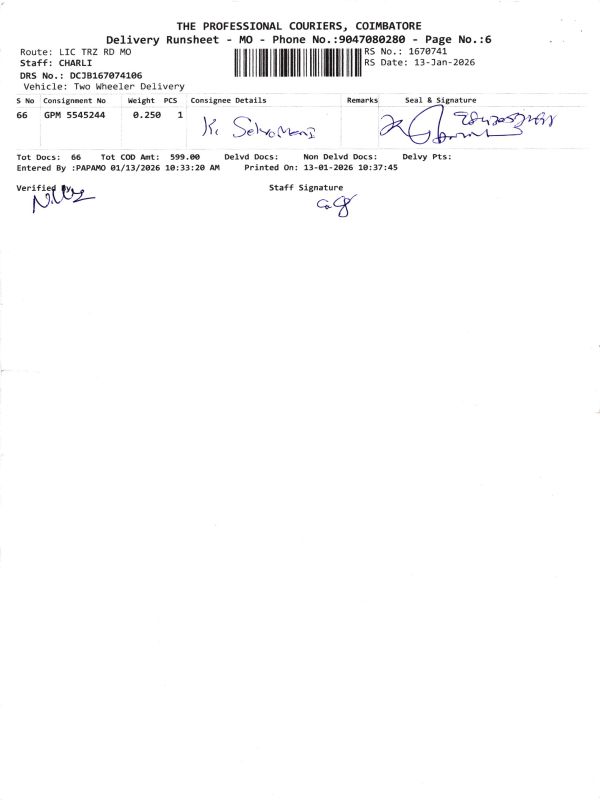 THE PROFESSIONAL COURIERS, COIMBATORE
Delivery Runsheet - MO - Phone No.:9047080280 - Page No.:6
Route: LIC TRZ RD MO RS No.: 1670741
Staff: CHARLI RS Date: 13-Jan-2026
DRS No.: DCJB167074106
Vehicle: Two Wheeler Delivery
S No Consignment No Weight PCS Consignee Details Remarks Seal & Signature
66 GPM 5545244 0.250 1 K. Selvamani
Tot Docs: 66 Tot COD Amt: 599.00 Delvd Docs: Non Delvd Docs: Delvy Pts:
Entered By :PAPAMO 01/13/2026 10:33:20 AM Printed On: 13-01-2026 10:37:45
Verified By Staff Signature